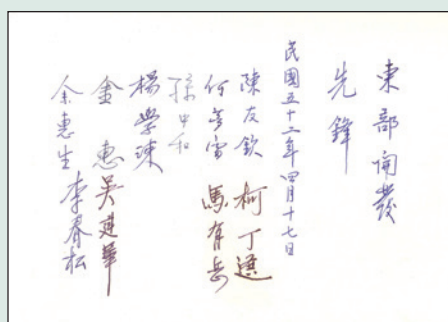 東部開發
先鋒
民國五十二年四月十七日
陳友欽 柯丁選
何夢雷 馬有岳
孫甲和
楊學涑
金惠 吳建華
余惠生 李春松